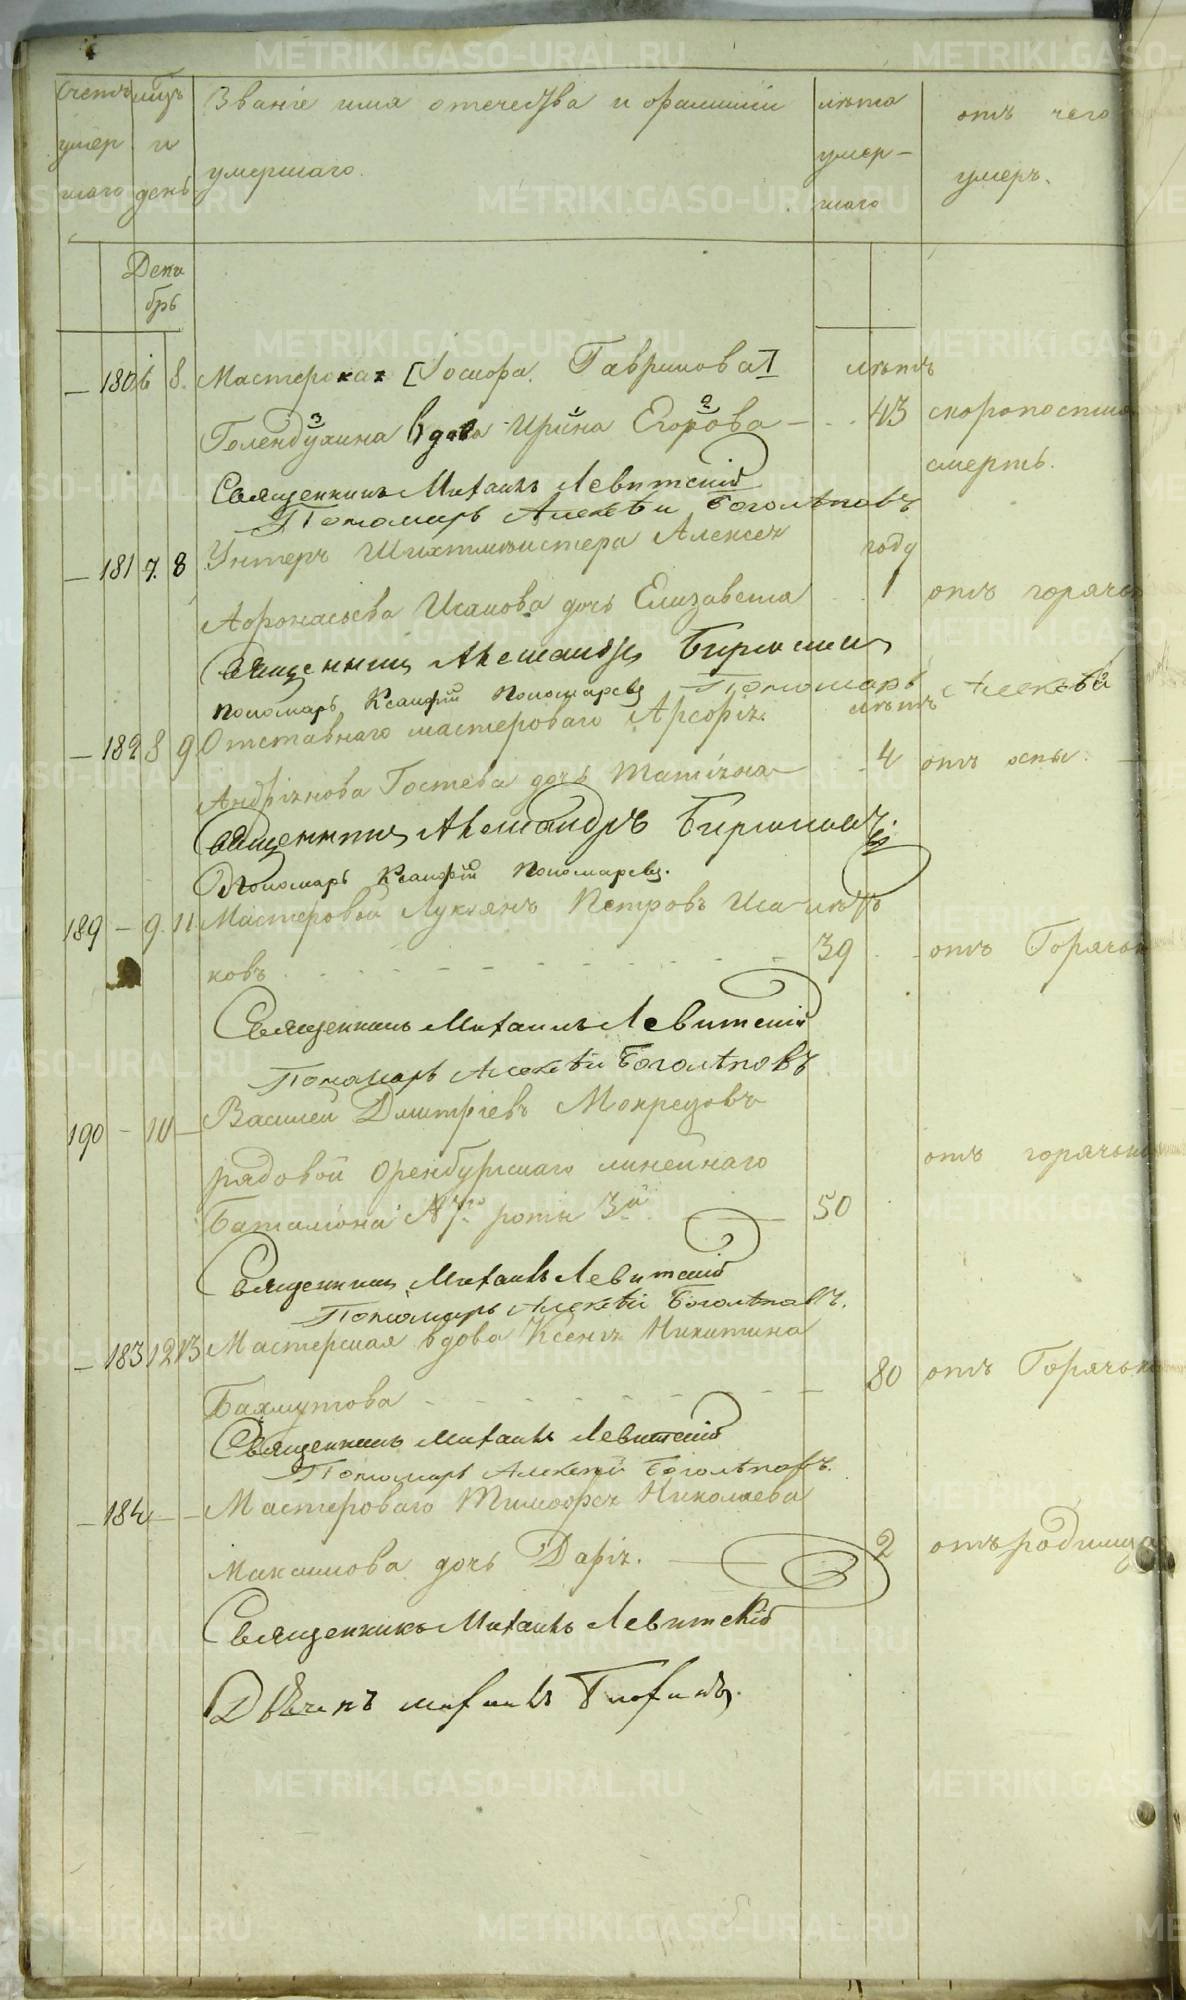 Счетъ мцъ Званіе имя отечества и фамиліи лѣта отъ чего
умер и умершаго. умер- умеръ.
шаго день шаго
Дека
брь
— 180 6 8. Мастерская [Іосифа Гаврилова] лѣтъ
Голендухина вдова Ирина Егорова — 43 скоропостиж
смерть.
Священникъ Михаилъ Левитскій
Пономарь Алексѣй Боголѣповъ
— 181 7. 8 Унтеръ Шихтмейстера Алексея году
Афонасьева Исакова дочь Елизавета 1 отъ горячк
Священникъ Александръ
Пономарь Ксанфій Пономаревъ Пономарь Алексѣй
— 182 8 9 Отставнаго мастероваго лѣтъ
Андріянова Гостева дочь Татіяна — 4 отъ оспы.
Священникъ Александръ
Пономарь Ксанфій Пономаревъ.
189 — 9. 11. Мастеровой Лукіянъ Петровъ Иса- лѣтъ
ковъ 39 отъ Горячк
Священникъ Михаилъ Левитскій
Пономарь Алексѣй Боголѣповъ
190 — 10 — Василей Дмитріевъ Мокрецовъ
рядовой Оренбургскаго линейнаго отъ горячк
Баталіона роты 3й — 50
Священникъ Михаилъ Левитскій
Пономарь Алексѣй Боголѣповъ.
— 183 12 13 Мастерская вдова Ксенія Никитина
Бахмутова 80 отъ Горячк
Священникъ Михаилъ Левитскій
Пономарь Алексѣй Боголѣповъ.
— 184 — — Мастероваго Тимофея Николаева
Максимова дочь Дарія. — 2 отъ родимца
Священникъ Михаилъ Левитскій
METRIKI.GASO-URAL.RU